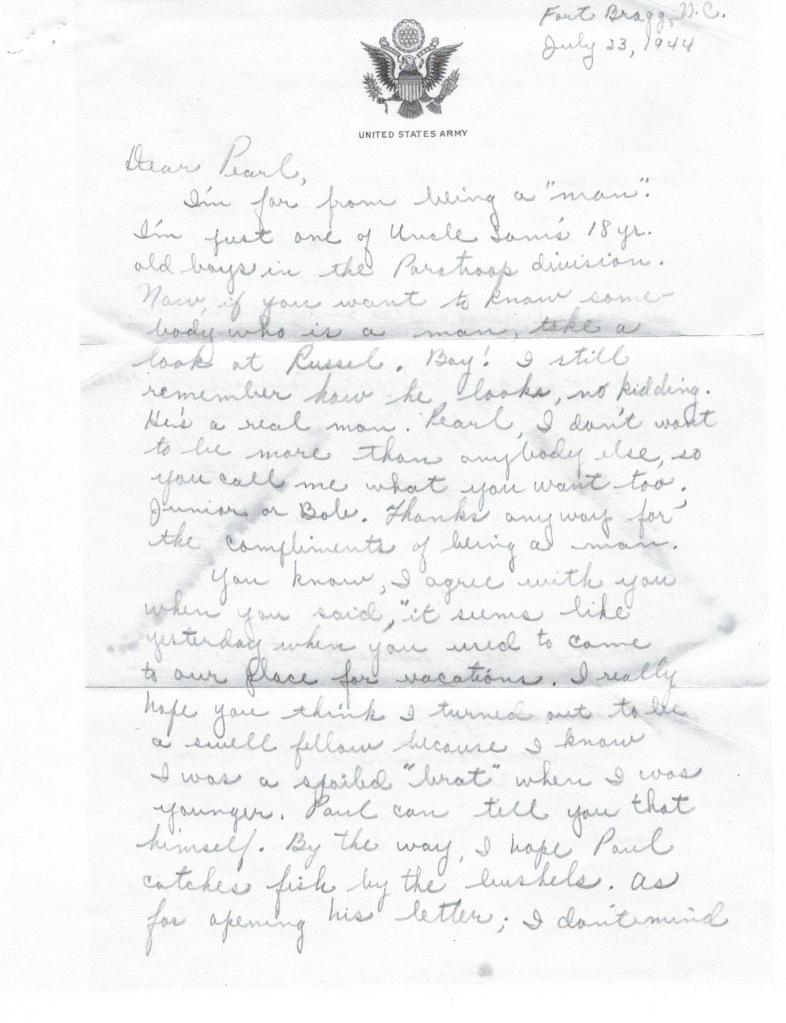 Fort Bragg, N.C.
July 23, 1944
UNITED STATES ARMY
Dear Pearl,
I'm far from being a "man".
I'm just one of Uncle Sam's 18 yr.
old boys in the Paratroop division.
Now, if you want to know some-
body who is a man, take a
look at Russel. Boy! I still
remember how he looks, no kidding.
He's a real man. Pearl, I don't want
to be more than anybody else, so
you call me what you want too.
Junior or Bob. Thanks anyway for
the compliments of being a man.
You know, I agree with you
when you said, "it seems like
yesterday when you used to come
to our place for vacations. I really
hope you think I turned out to be
a swell fellow because I know
I was a spoiled "brat" when I was
younger. Paul can tell you that
himself. By the way, I hope Paul
catches fish by the bushels. As
for opening his letter; I don't mind